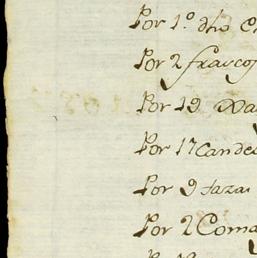 Por 1.º dho
Por 2 frascos
Por 19
Por 17 Cande
Por 9 taza
Por 2 Coma